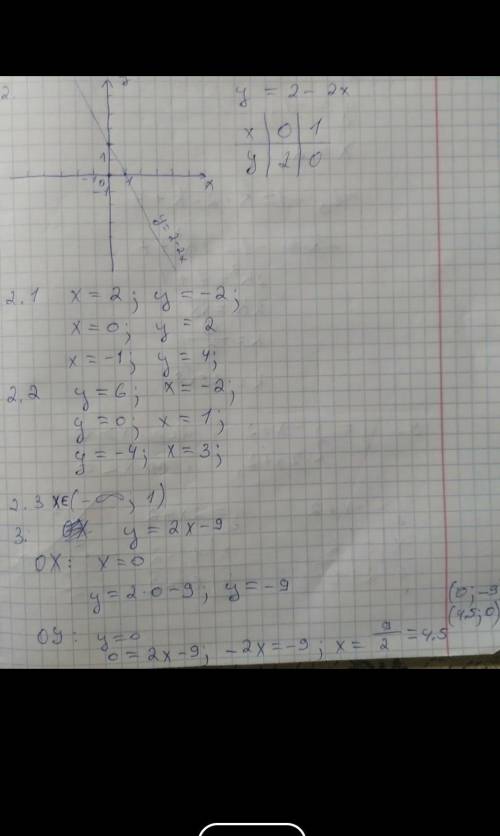 2.
y = 2 - 2x
x | 0 | 1
y | 2 | 0
1
-1 0 1 x
-1
y=2-2x
2.1 x = 2; y = -2;
x = 0; y = 2
x = -1; y = 4;
2.2 y = 6; x = -2;
y = 0; x = 1;
y = -4; x = 3;
2.3 x∈(-∞; 1)
3. y = 2x - 9
OX: x = 0
y = 2·0 - 9; y = -9
(0; -9
(4,5; 0)
OY: y = 0
0 = 2x - 9; -2x = -9; x = 9/2 = 4,5